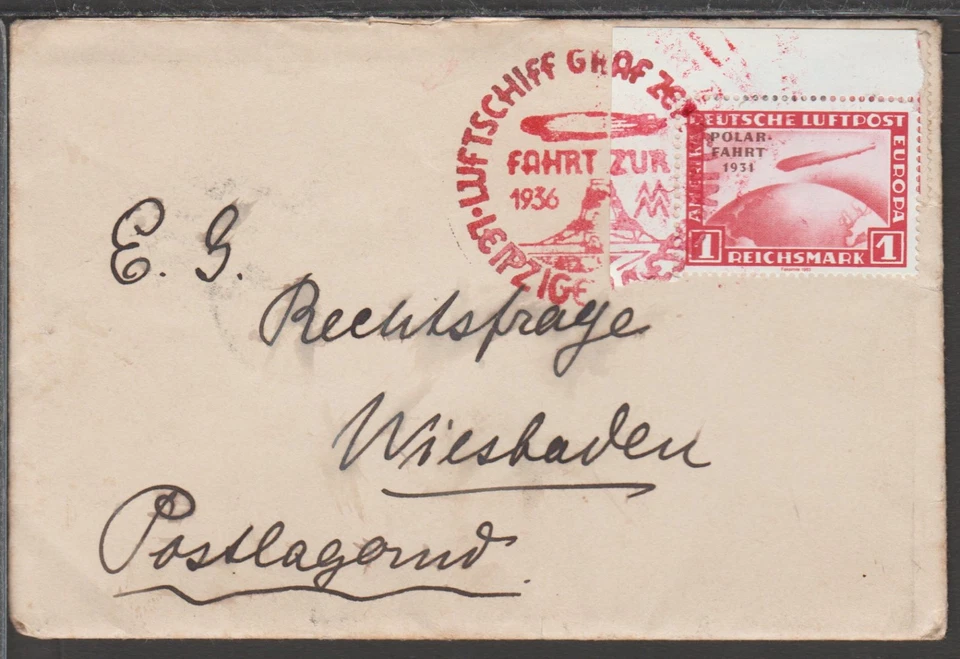 LUFTSCHIFF GRAF ZE
FAHRT ZUR
1936 MM
LEIPZIGE
DEUTSCHE LUFTPOST
AMERIKA
EUROPA
POLAR-
FAHRT
1931
1 REICHSMARK 1
E. G.
Rechtsfrage
Wiesbaden
Postlagernd.